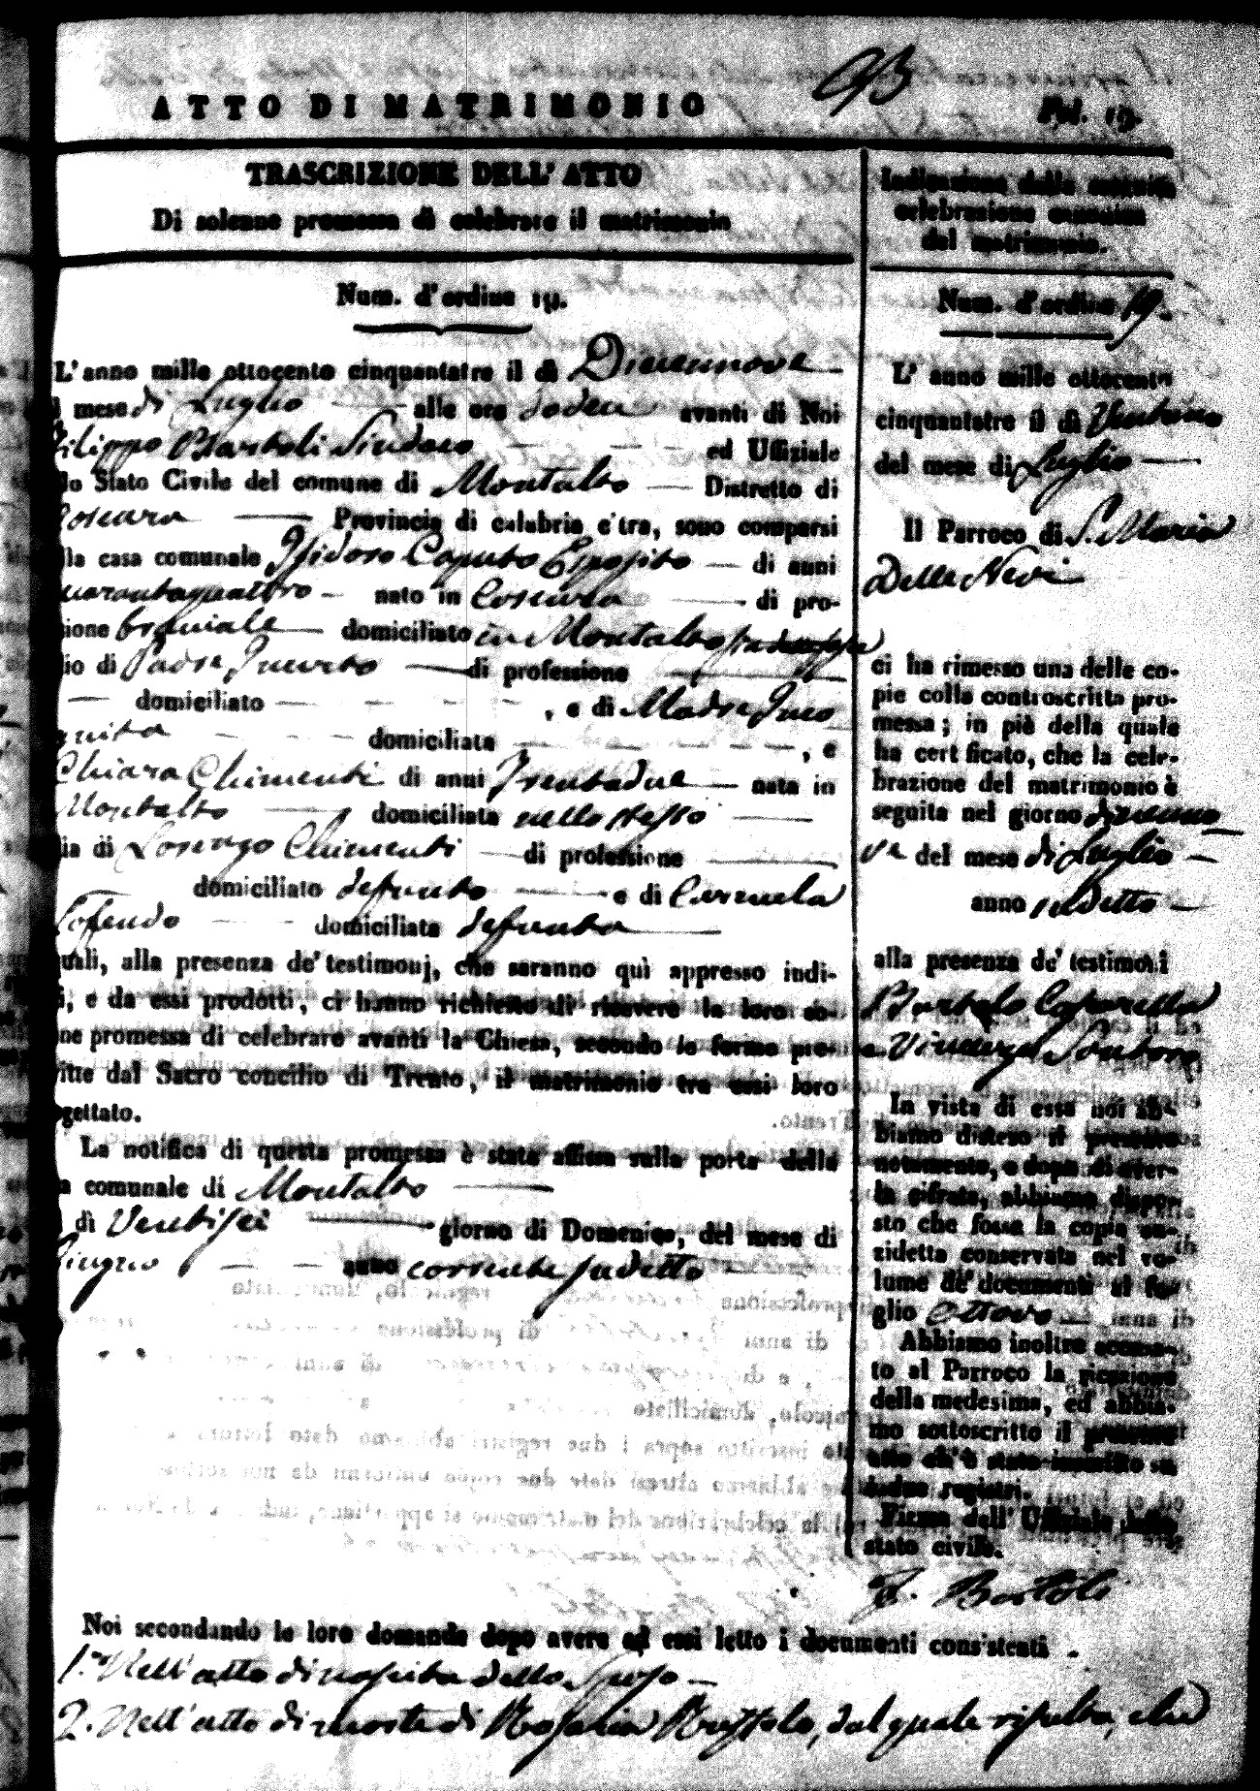 93
ATTO DI MATRIMONIO
Fol. 19.
TRASCRIZIONE DELL' ATTO
Di solenne promessa di celebrare il matrimonio
Num. d'ordine 19.
L'anno mille ottocento cinquantatre il dì Diecennove
mese di Luglio alle ore dodeci avanti di Noi
Filippo Bartoli Sindaco ed Uffiziale
lo Stato Civile del comune di Montalto Distretto di
Cosenza Provincia di calabria c'tra, sono comparsi
la casa comunale Isidoro Caputo Esposito di anni
quarantaquattro nato in Cosenza di pro-
ione domiciliato in Montalto
io di Padre Incerto di professione
domiciliato , e di Madre Inco
gnita domiciliata , e
Chiara Chimenti di anni Trentadue nata in
Montalto domiciliata nello stesso
ia di Lorenzo Chimenti di professione
domiciliato defunto e di Carmela
domiciliata defunta
uali, alla presenza de' testimonj, che saranno quì appresso indi-
i, e da essi prodotti, ci hanno richiesto di ricevere la loro so-
ne promessa di celebrare avanti la Chiesa, secondo le forme pre-
itte dal Sacro concilio di Trento, il matrimonio tra essi loro
gettato.
La notifica di questa promessa è stata affissa sulla porta della
a comunale di Montalto
dì Ventisei giorno di Domenica, del mese di
Giugno anno corrente sudetto
Indicazione della seguita
celebrazione canonica
del matrimonio.
Num. d'ordine 19.
L' anno mille ottocento
cinquantatre il dì Ventuno
del mese di Luglio
Il Parroco di S. Maria
Delle Nevi
ci ha rimesso una delle co-
pie colla controscritta pro-
messa; in piè della quale
ha cert ficato, che la cele-
brazione del matrimonio è
seguita nel giorno diecenno
ve del mese di Luglio
anno sudetto
alla presenza de' testimonj
Bartolo Caparella
e Vincenzo Santoro
In vista di essa noi ab-
biamo disteso il presente
notamento, e dopo di aver-
la cifrata, abbiamo dispo-
sto che fosse la copia an-
zidetta conservata nel vo-
lume de' documenti al fo-
glio ottavo
Abbiamo inoltre accusa-
to al Parroco la ricezione
della medesima, ed abbia-
mo sottoscritto il presente
atto ch'è stato inscritto su
due registri.
Firma dell' Uffiziale dello
stato civile.
F. Bartoli
Noi secondando le loro domande dopo avere ad essi letto i documenti cons'stenti
1.° Nell'atto di nascita dello Sposo
2. Nell'atto di morte di Rosaria Ruffolo, dal quale risulta, che